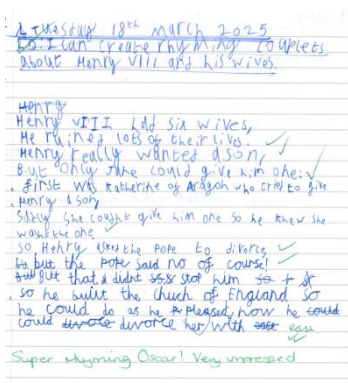 Tuesday 18th March 2025
LO: I can create rhyming couplets
about Henry VIII and his wives.
Henry
Henry VIII had six wives,
He ruined lots of their lives.
Henry really wanted a son,
But only Jane could give him one.
First was Katherine of Aragon who tried to give
Henry a son,
Sadly She cought give him one so he knew she
wasnt the one
So Henry asked the Pope to divorce
but the Pope said no of course!
But that didnt stop him
so he built the Chuch of England so
he could do as he pleased, now he could
divorce her with ease
Super rhyming Oscar! Very impressed